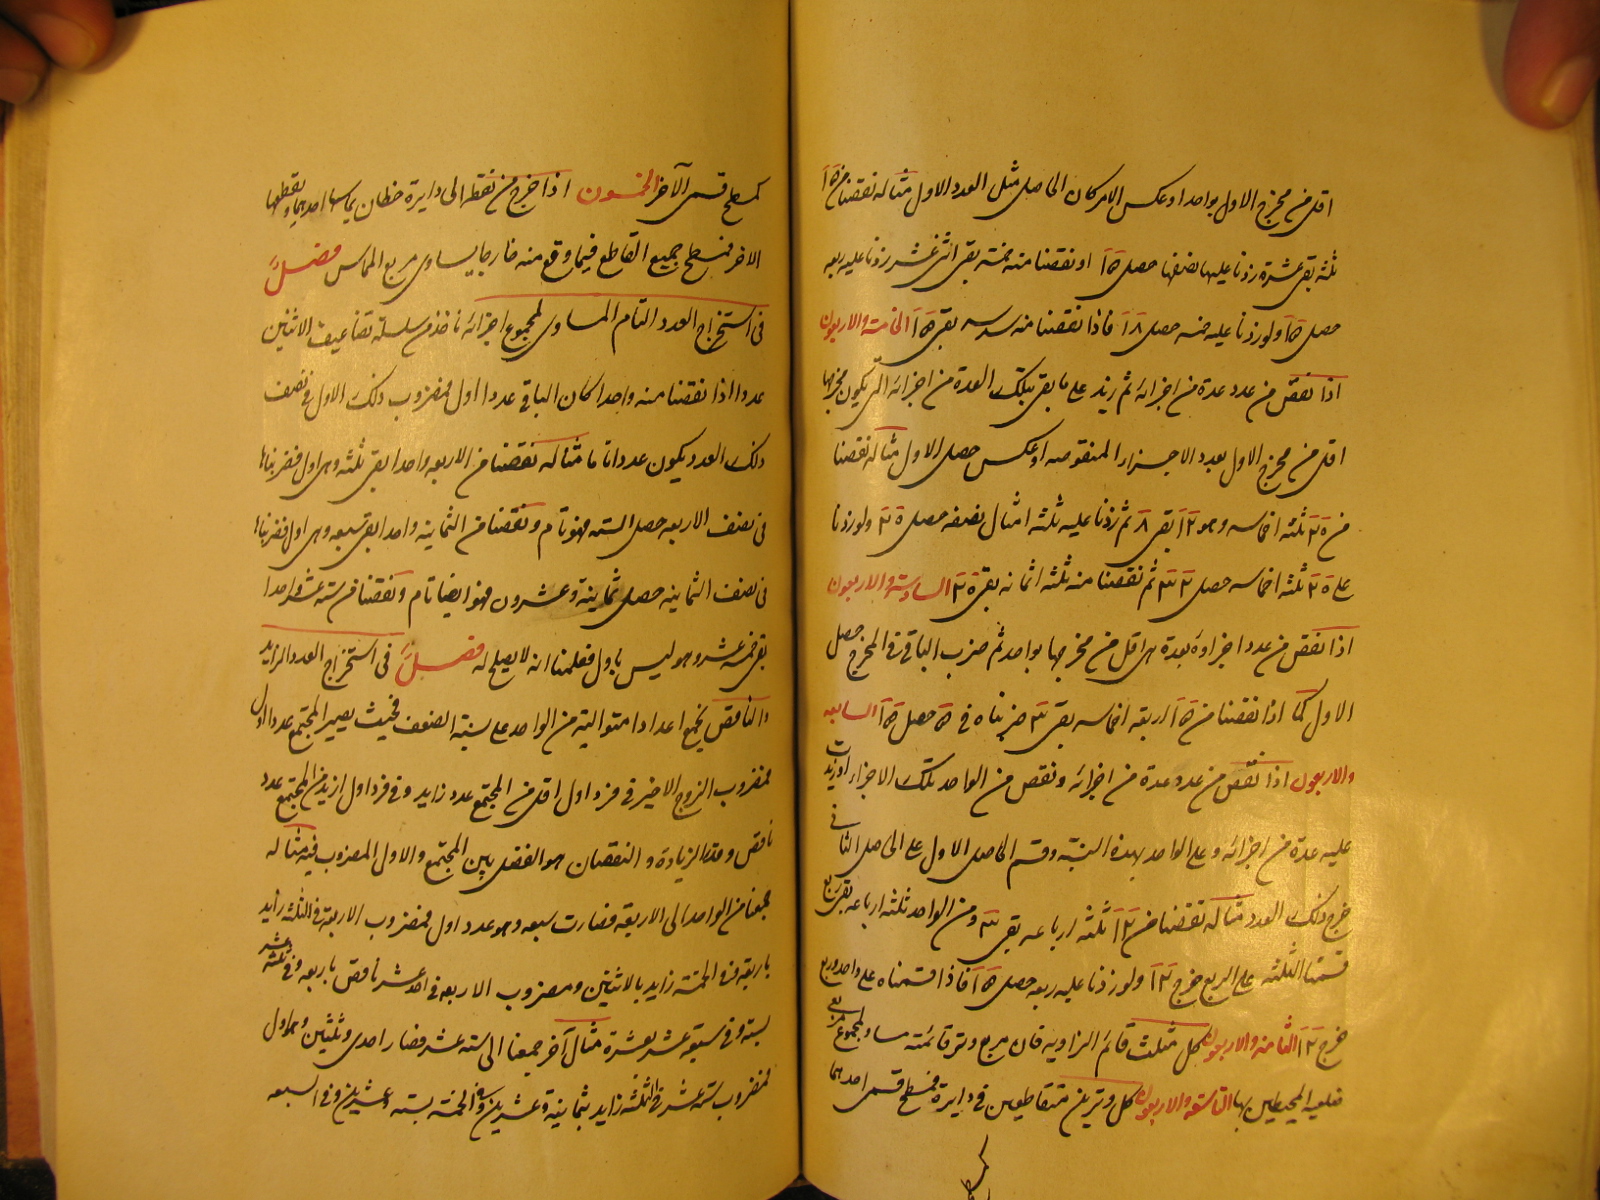 اقل من مخرج الاول بواحد او عكس الامر كان الحاصل مثل العدد الاول مثاله نقصنا من ١٥
ثلثه بقى عشرة زدنا عليها نصفها حصل ١٥ او نقصنا منه خمسه بقى اثنى عشر زدنا عليه ربعه
حصل ١٥ ولو زدنا عليه خمسه حصل ١٨ فاذا نقصنا منه سدسه بقى ١٥ الخامسة والاربعون
اذا نقص من عدد عدة من اجزائه ثم زيد على ما بقى بتلك العدة من اجزائه التى يكون مخرجها
اقل من مخرج الاول بعدد الاجزاء المنقوصه او عكس حصل الاول مثاله نقصنا
من ٢٠ ثلثه اخماسه وهو ١٢ بقى ٨ ثم زدنا عليه ثلثه امثال نصفه حصل ٢٠ ولو زدنا
على ٢٠ ثلثه اخماسه حصل ٣٢ ثم نقصنا منه ثلثه اثمانه بقى ٢٠ السادسة والاربعون
اذا نقص من عدد اجزاؤه بعدة هى اقل من مخرجها بواحد ثم ضرب الباقى فى المخرج حصل
الاول كما اذا نقصنا من ١٥ اربعة اخماسه بقى ٣ ضربناه فى ٥ حصل ١٥ السابعه
والاربعون اذا نقص من عدد عدة من اجزائه ونقص من الواحد تلك الاجزاء او زيدت
عليه عدة من اجزائه وعلى الواحد بهذه النسبة وقسم الحاصل الاول على الحاصل الثانى
خرج ذلك العدد مثاله نقصنا من ١٢ ثلثه ارباعه بقى ٣ ومن الواحد ثلثه ارباعه بقى ربع
قسمنا الثلثه على الربع خرج ١٢ ولو زدنا عليه ربعه حصل ١٥ فاذا قسمناه على واحد وربع
خرج ١٢ الثامنه والاربعون كل مثلث قائم الزاويه فان مربع وتر قائمته مساو لمجموع مربعى
ضلعيه المحيطين بها التاسعه والاربعون كل وترين متقاطعين فى دايرة فمسطح قسمى احدهما
كمسطح
كمسطح قسمى الآخر الخمسون اذا خرج من نقطه الى دايرة خطان يماسها احدهما ويقطعها
الاخر فمسطح جميع القاطع فيما وقع منه خارجا يساوى مربع المماس فصل
فى استخراج العدد التام المساوى لمجموع اجزائه ناخذ من سلسلة تضاعيف الاثنين
عددا اذا نقصنا منه واحدا كان الباقى عددا اول فمضروب ذلك الاول فى نصف
ذلك العدد يكون عددا تاما مثاله نقصنا من الاربعه واحدا بقى ثلثه وهى اول فضربناها
فى نصف الاربعه حصل السته فهو تام ونقصنا من الثمانيه واحدا بقى سبعه وهى اول فضربناها
فى نصف الثمانيه حصل ثمانية وعشرون فهو ايضا تام ونقصنا من سته عشر واحدا
بقى خمسه عشر وهو ليس باول فعلمنا انه لا يصلح له فصل فى استخراج العدد الزايد
والناقص نجمع اعدادا متوالية من الواحد على نسبة الضعف بحيث يصير المجتمع عددا اول
فمضروب الزوج الاخير فى فرد اول اقل من المجتمع عدد زايد وفى فرد اول ازيد من المجتمع عدد
ناقص وقدر الزيادة والنقصان هو الفضل بين المجتمع والاول المضروب فيه مثاله
جمعنا من الواحد الى الاربعة فصارت سبعه وهو عدد اول فمضروب الاربعة فى الثلثه زايد
باربعة وفى الخمسة زايد بالاثنين ومضروب الاربعه فى احد عشر ناقص باربعه وفى ثلثه عشر
بسته وفى سبعة عشر بعشرة مثال آخر جمعنا الى سته عشر فصار احدى وثلثين وهو اول
فمضروب سته عشر فى الثلثه زايد بثمانية وعشرين وفى الخمسه بسته وعشرين وفى السبعه